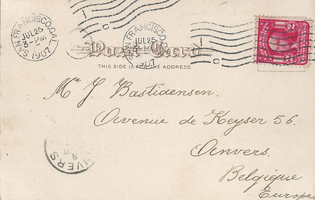 SAN FRANCISCO, CAL.
JUL 25
3-PM
1907
FRANCISCO
JUL 25
Post Card
THIS SIDE IS FOR THE ADDRESS
Mr J. Bastiaensen
Avenue de Keyser 56.
Anvers.
Belgique
Europe